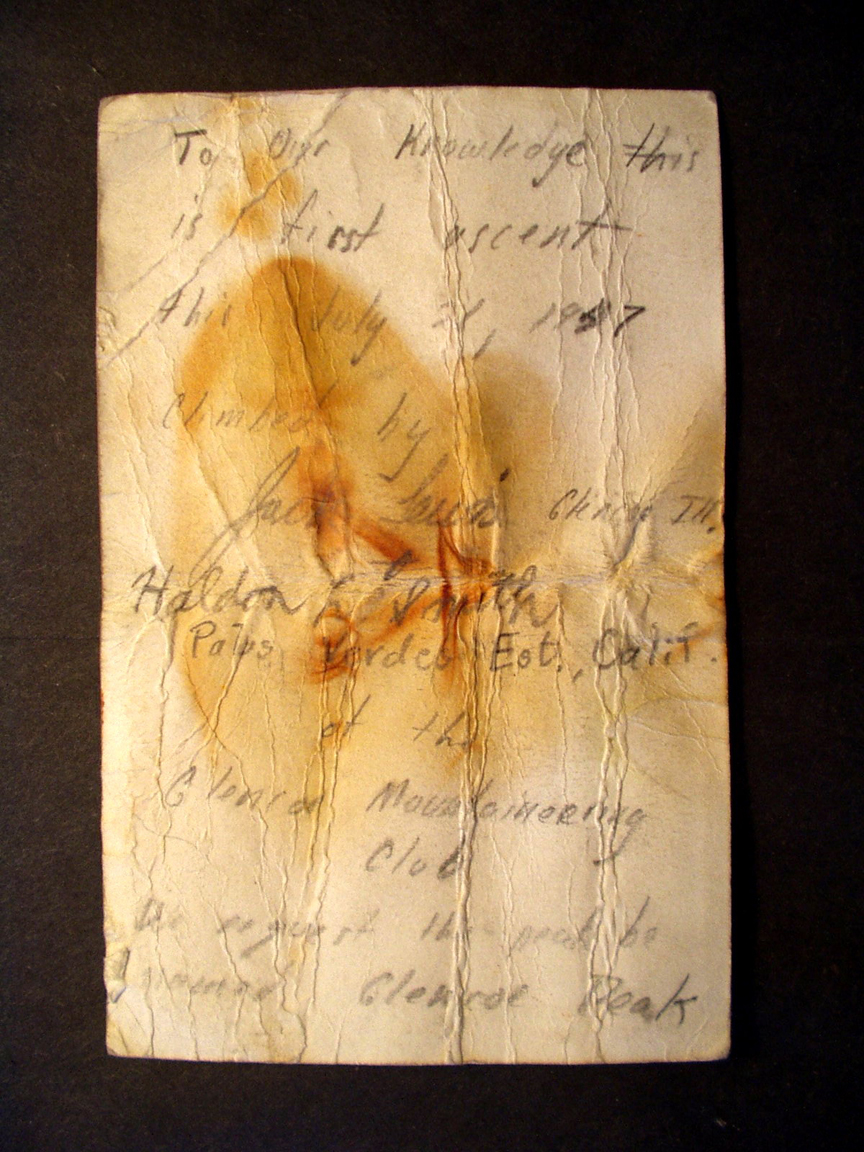 To Our Knowledge this
is first ascent
this July 21, 1957
Climbed by
Jack
Haldon Smith
Palos Verdes Est., Calif.
of the
Glenroe Mountaineering
Club
We request this peak be
named Glenroe Peak